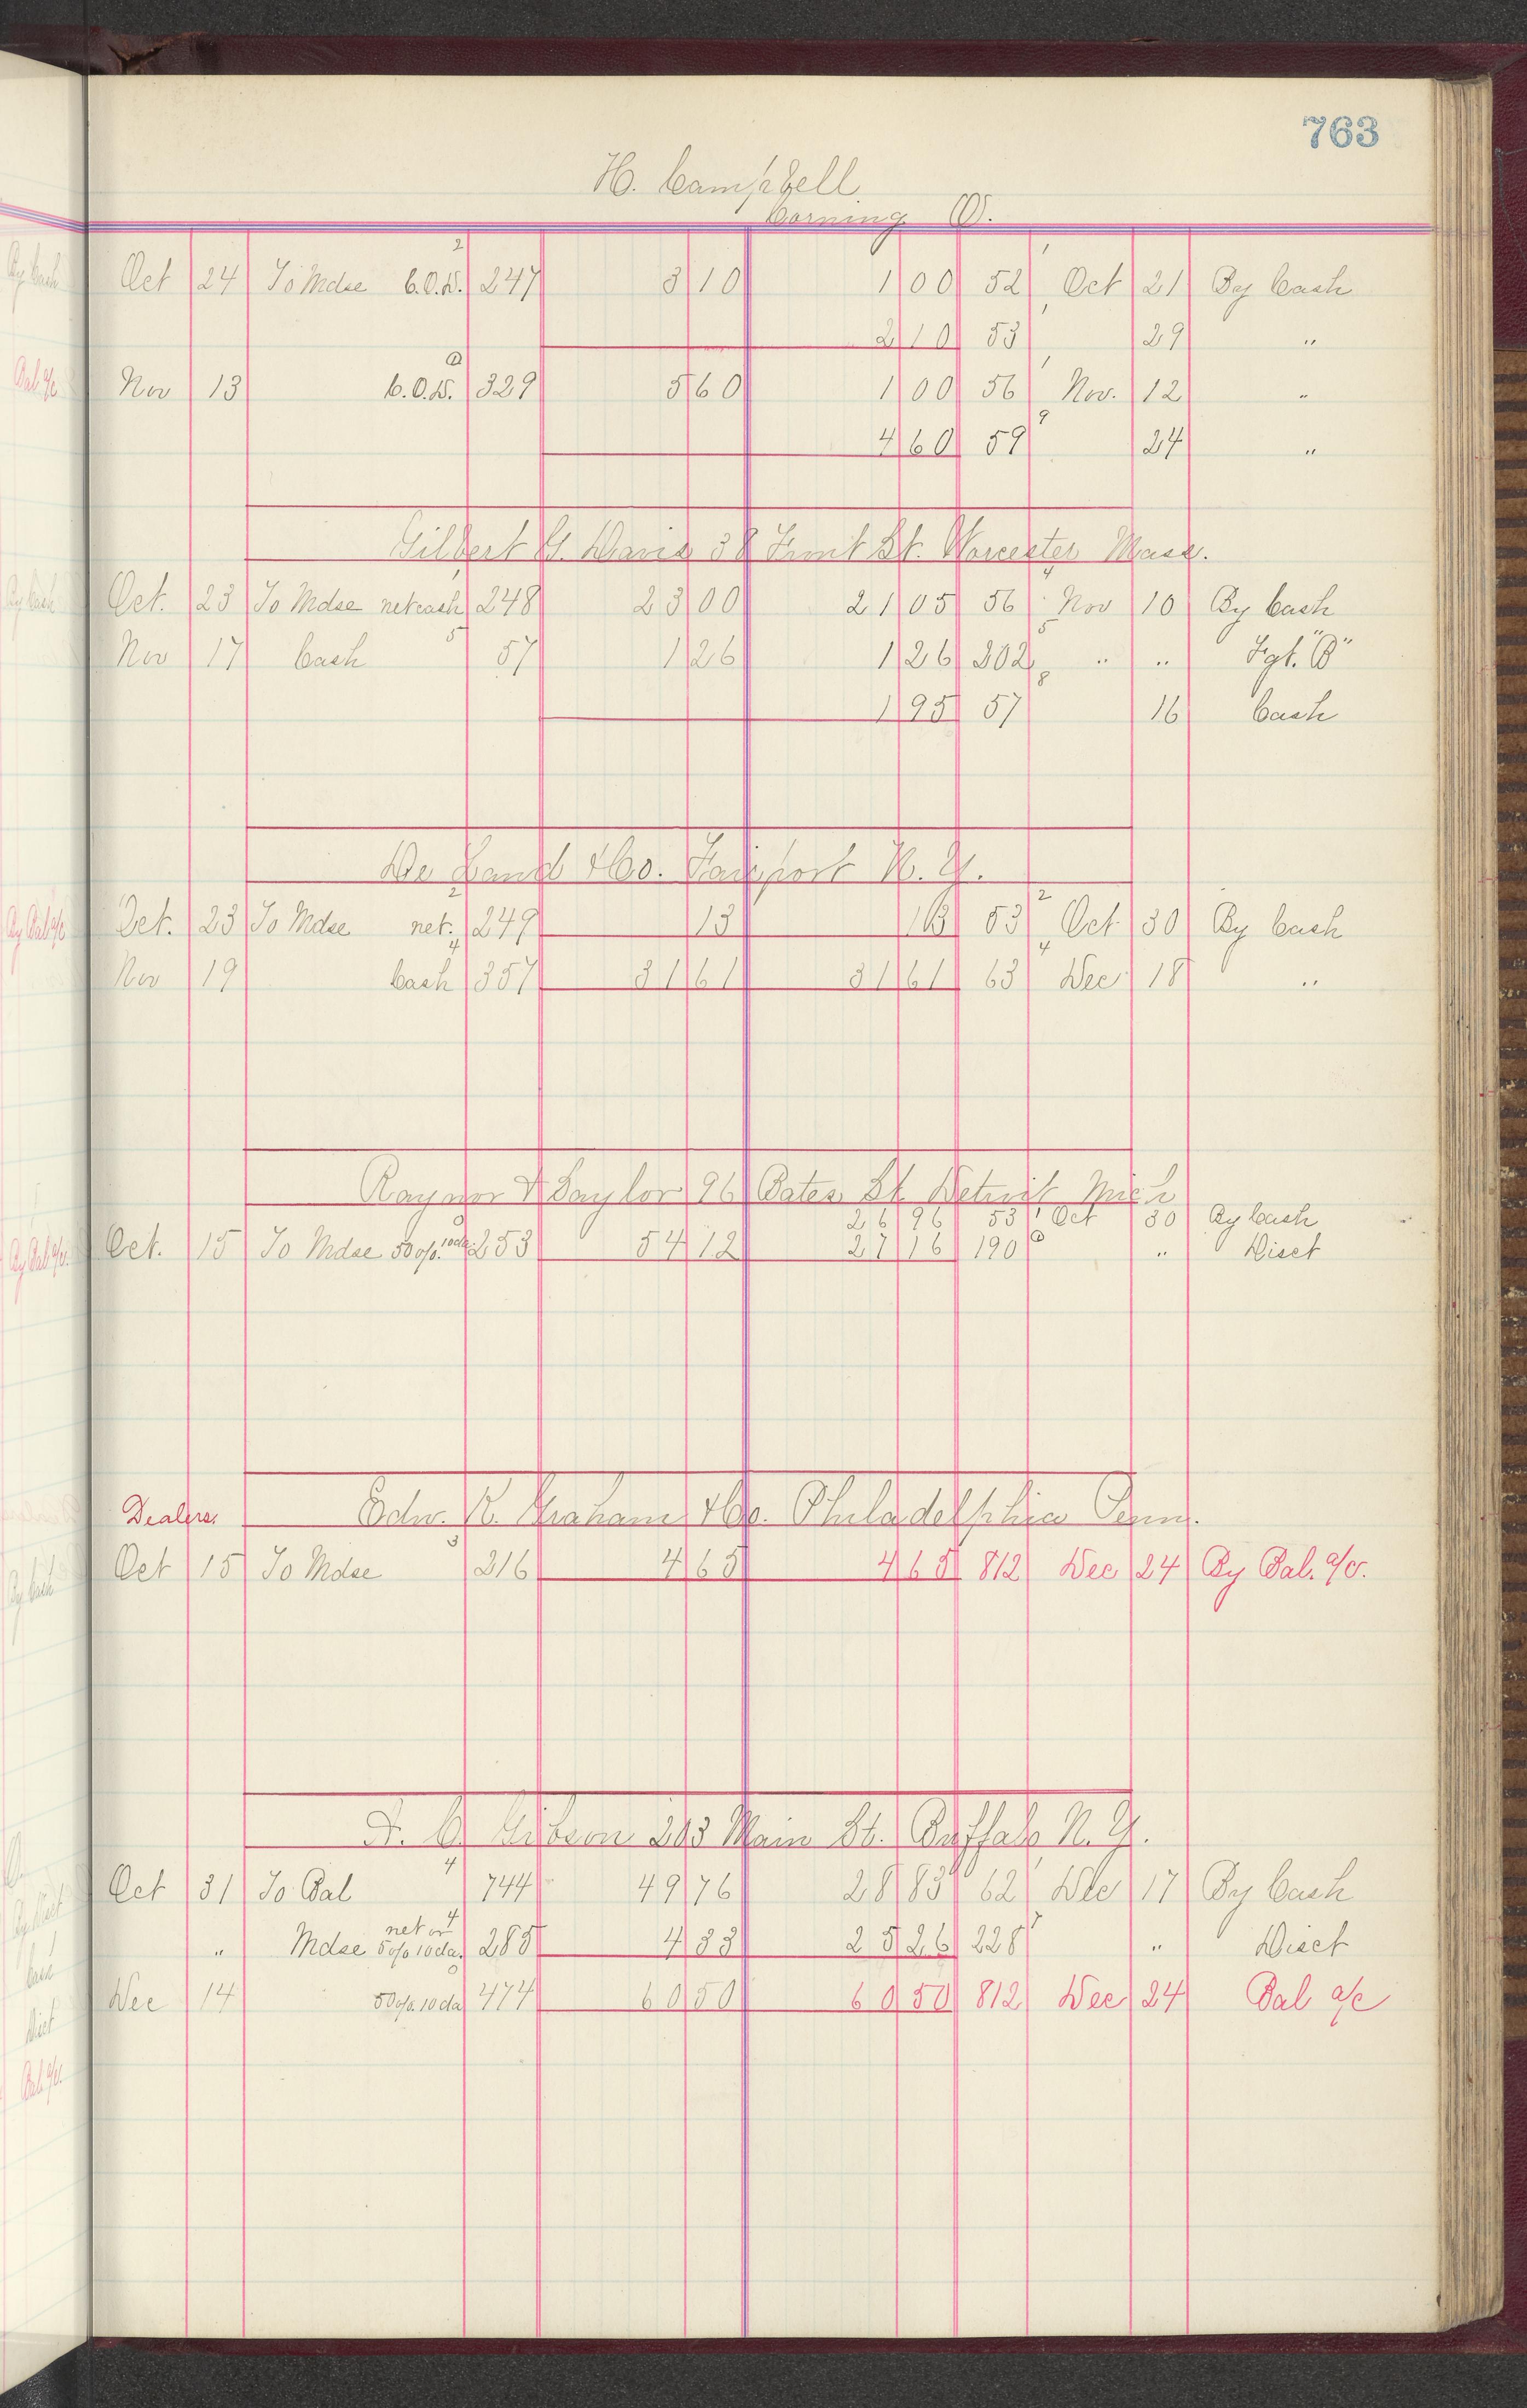 763
H. Campbell
Corning O.
2 1
Oct 24 To Mdse C.O.D. 247 3 10 1 00 52 Oct 21 By Cash
2 10 53 29 "
Nov 13 C.O.D. 329 5 60 1 00 56 Nov. 12 "
4 60 59 9 24 "
Gilbert G. Davis 38 Front St. Worcester Mass.
Oct. 23 To Mdse net cash 248 23 00 21 05 56 4 Nov 10 By Cash
Nov 17 Cash 5 57 1 26 1 26 202 5 " " Fgt. "B"
1 95 57 8 16 Cash
De Land & Co. Fairport N. Y.
Oct. 23 To Mdse net. 2 249 13 13 53 2 Oct 30 By Cash
Nov 19 Cash 4 357 31 61 31 61 63 4 Dec 18 "
Raynor & Taylor 96 Bates St. Detroit Mich
26 96 53 1 Oct 30 By Cash
Oct. 15 To Mdse 50 o/o. 10 da. 253 54 12 27 16 190 " Disct
Dealers. Edw. K. Graham & Co. Philadelphia Penn.
Oct 15 To Mdse 3 216 4 65 4 65 812 Dec 24 By Bal. a/c.
A. C. Gibson 203 Main St. Buffalo N. Y.
Oct 31 To Bal 4 744 49 76 28 83 62 1 Dec 17 By Cash
" Mdse net or 5 o/o 10 da. 4 285 4 33 25 26 228 " Disct
Dec 14 50 o/o 10 da 474 60 50 60 50 812 Dec 24 Bal a/c